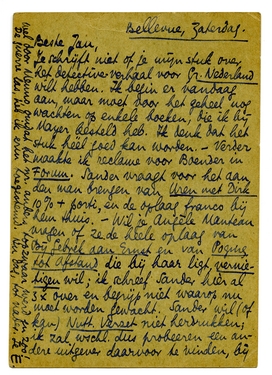 Bellevue, Zaterdag.
Beste Jan,
Je schrijft niet of je mijn stuk over
het detective-verhaal voor Gr. Nederland
wilt hebben. Ik begin er vandaag
aan, maar moet door het geheel nog
wachten op enkele boeken, die ik bij
Mayer besteld heb. Ik denk dat het
stuk heel goed kan worden. – Verder
maakte ik reclame voor Boender in
Forum. Sander vraagt voor het aan
den man brengen van Uren met Dirk
10% + porti, en de oplaag franco bij
hem thuis. – Wil je Angèle Manteau
vragen of ze de heele oplaag van
Bij Gebrek aan Ernst en van Poging
tot Afstand die bij haar ligt, vernie-
tigen wil; ik schreef Sander hier al
5x over en begrijp niet waarop nu
moet worden gewacht. Sander wil (of
kan) Nutt. Verzet niet herdrukken;
ik zal, wschl. dus probeeren een an-
dere uitgever daarvoor te vinden, bij